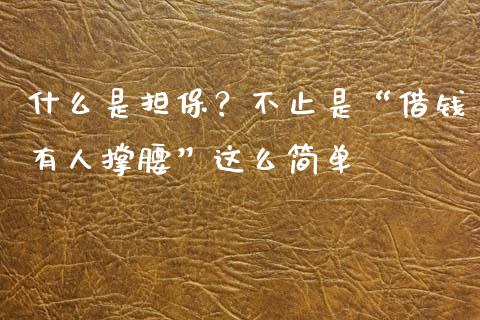 什么是担保？不止是“借钱
有人撑腰”这么简单